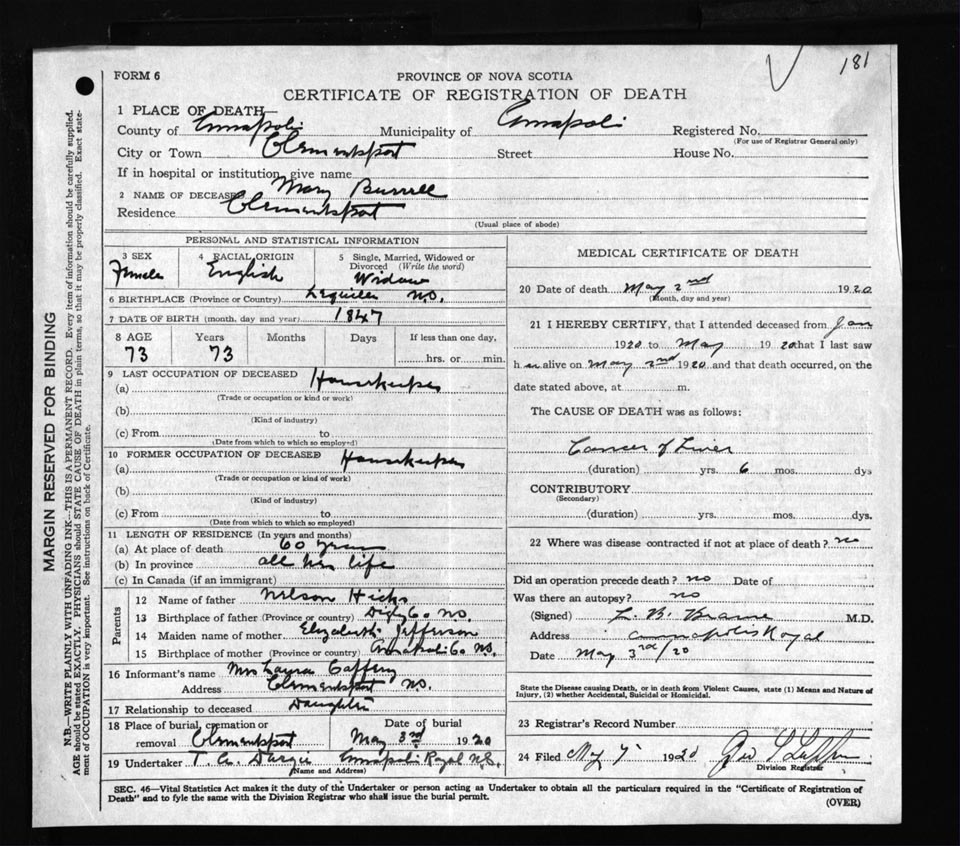 181
FORM 6
PROVINCE OF NOVA SCOTIA
CERTIFICATE OF REGISTRATION OF DEATH
1 PLACE OF DEATH—
County of Annapolis Municipality of Annapolis Registered No.
(For use of Registrar General only)
City or Town Clementsport Street House No.
If in hospital or institution, give name
2 NAME OF DECEASED Mary Burrell
Residence Clementsport
(Usual place of abode)
PERSONAL AND STATISTICAL INFORMATION
3 SEX 4 RACIAL ORIGIN 5 Single, Married, Widowed or Divorced (Write the word)
Female English Widow
6 BIRTHPLACE (Province or Country) Lequille N.S.
7 DATE OF BIRTH (month, day and year) 1847
8 AGE Years Months Days If less than one day,
73 73 hrs. or min.
9 LAST OCCUPATION OF DECEASED Housekeeper
(a)
(Trade or occupation or kind or work)
(b)
(Kind of industry)
(c) From to
(Date from which to which so employed)
10 FORMER OCCUPATION OF DECEASED Housekeeper
(a)
(Trade or occupation or kind of work)
(b)
(Kind of industry)
(c) From to
(Date from which to which so employed)
11 LENGTH OF RESIDENCE (In years and months)
(a) At place of death 60 years
(b) In province all her life
(c) In Canada (if an immigrant)
Parents
12 Name of father Nelson Hicks
13 Birthplace of father (Province or country) Digby Co. N.S.
14 Maiden name of mother Elizabeth Jefferson
15 Birthplace of mother (Province or country) Annapolis Co N.S.
16 Informant's name Mrs Laura Caffery
Address Clementsport N.S.
17 Relationship to deceased Daughter
18 Place of burial, cremation or removal Clementsport Date of burial May 3rd 1920
19 Undertaker T. A. Dargie Annapolis Royal N.S.
(Name and Address)
MEDICAL CERTIFICATE OF DEATH
20 Date of death May 2nd 1920
(Month, day and year)
21 I HEREBY CERTIFY, that I attended deceased from Jan
1920 to May 1920 that I last saw
her alive on May 2nd 1920 and that death occurred, on the
date stated above, at m.
The CAUSE OF DEATH was as follows:
Cancer of Liver
(duration) yrs. 6 mos. dys
CONTRIBUTORY
(Secondary)
(duration) yrs. mos. dys.
22 Where was disease contracted if not at place of death? no
Did an operation precede death? no Date of
Was there an autopsy? no
(Signed) L. B. M.D.
Address Annapolis Royal
Date May 3rd/20
State the Disease causing Death, or in death from Violent Causes, state (1) Means and Nature of
Injury, (2) whether Accidental, Suicidal or Homicidal.
23 Registrar's Record Number
24 Filed May 7 1920 Geo
Division Registrar
SEC. 46—Vital Statistics Act makes it the duty of the Undertaker or person acting as Undertaker to obtain all the particulars required in the "Certificate of Registration of
Death" and to fyle the same with the Division Registrar who shall issue the burial permit.
(OVER)
MARGIN RESERVED FOR BINDING
N.B.—WRITE PLAINLY WITH UNFADING INK—THIS IS A PERMANENT RECORD. Every item of information should be carefully supplied.
AGE should be stated EXACTLY. PHYSICIANS should STATE CAUSE OF DEATH in plain terms, so that it may be properly classified. Exact statement of OCCUPATION is very important. See instructions on back of Certificate.